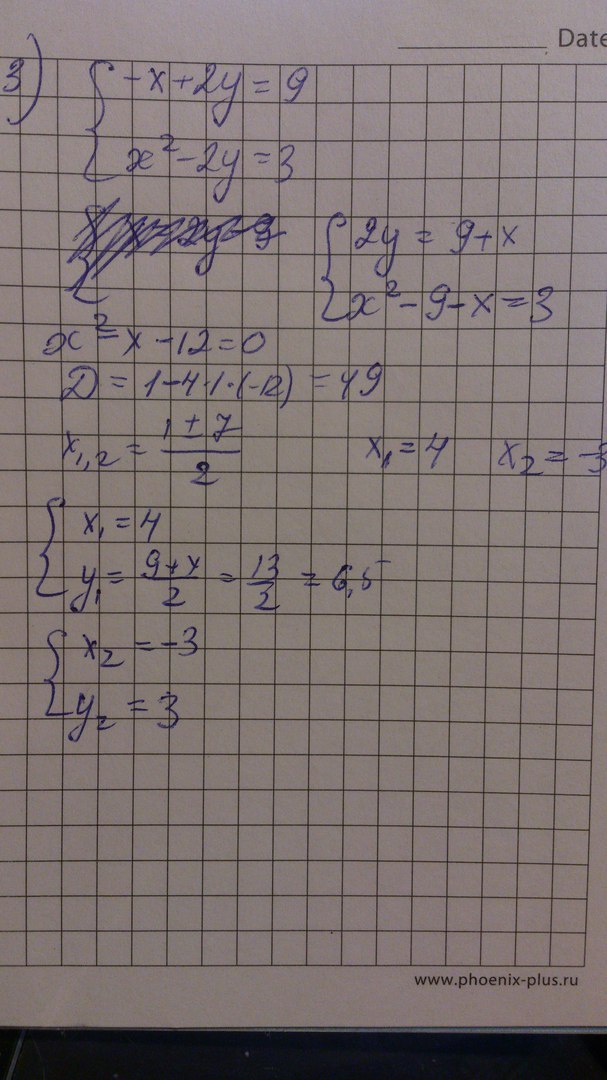 Date
3)
{ -x+2y = 9
x² - 2y = 3
{ 2y = 9+x
x² - 9 - x = 3
x² - x - 12 = 0
D = 1-4·1·(-12) = 49
x₁,₂ = (1 ± 7)/2 x₁ = 4 x₂ = -3
{ x₁ = 4
y₁ = (9+x)/2 = 13/2 = 6,5
{ x₂ = -3
y₂ = 3
www.phoenix-plus.ru